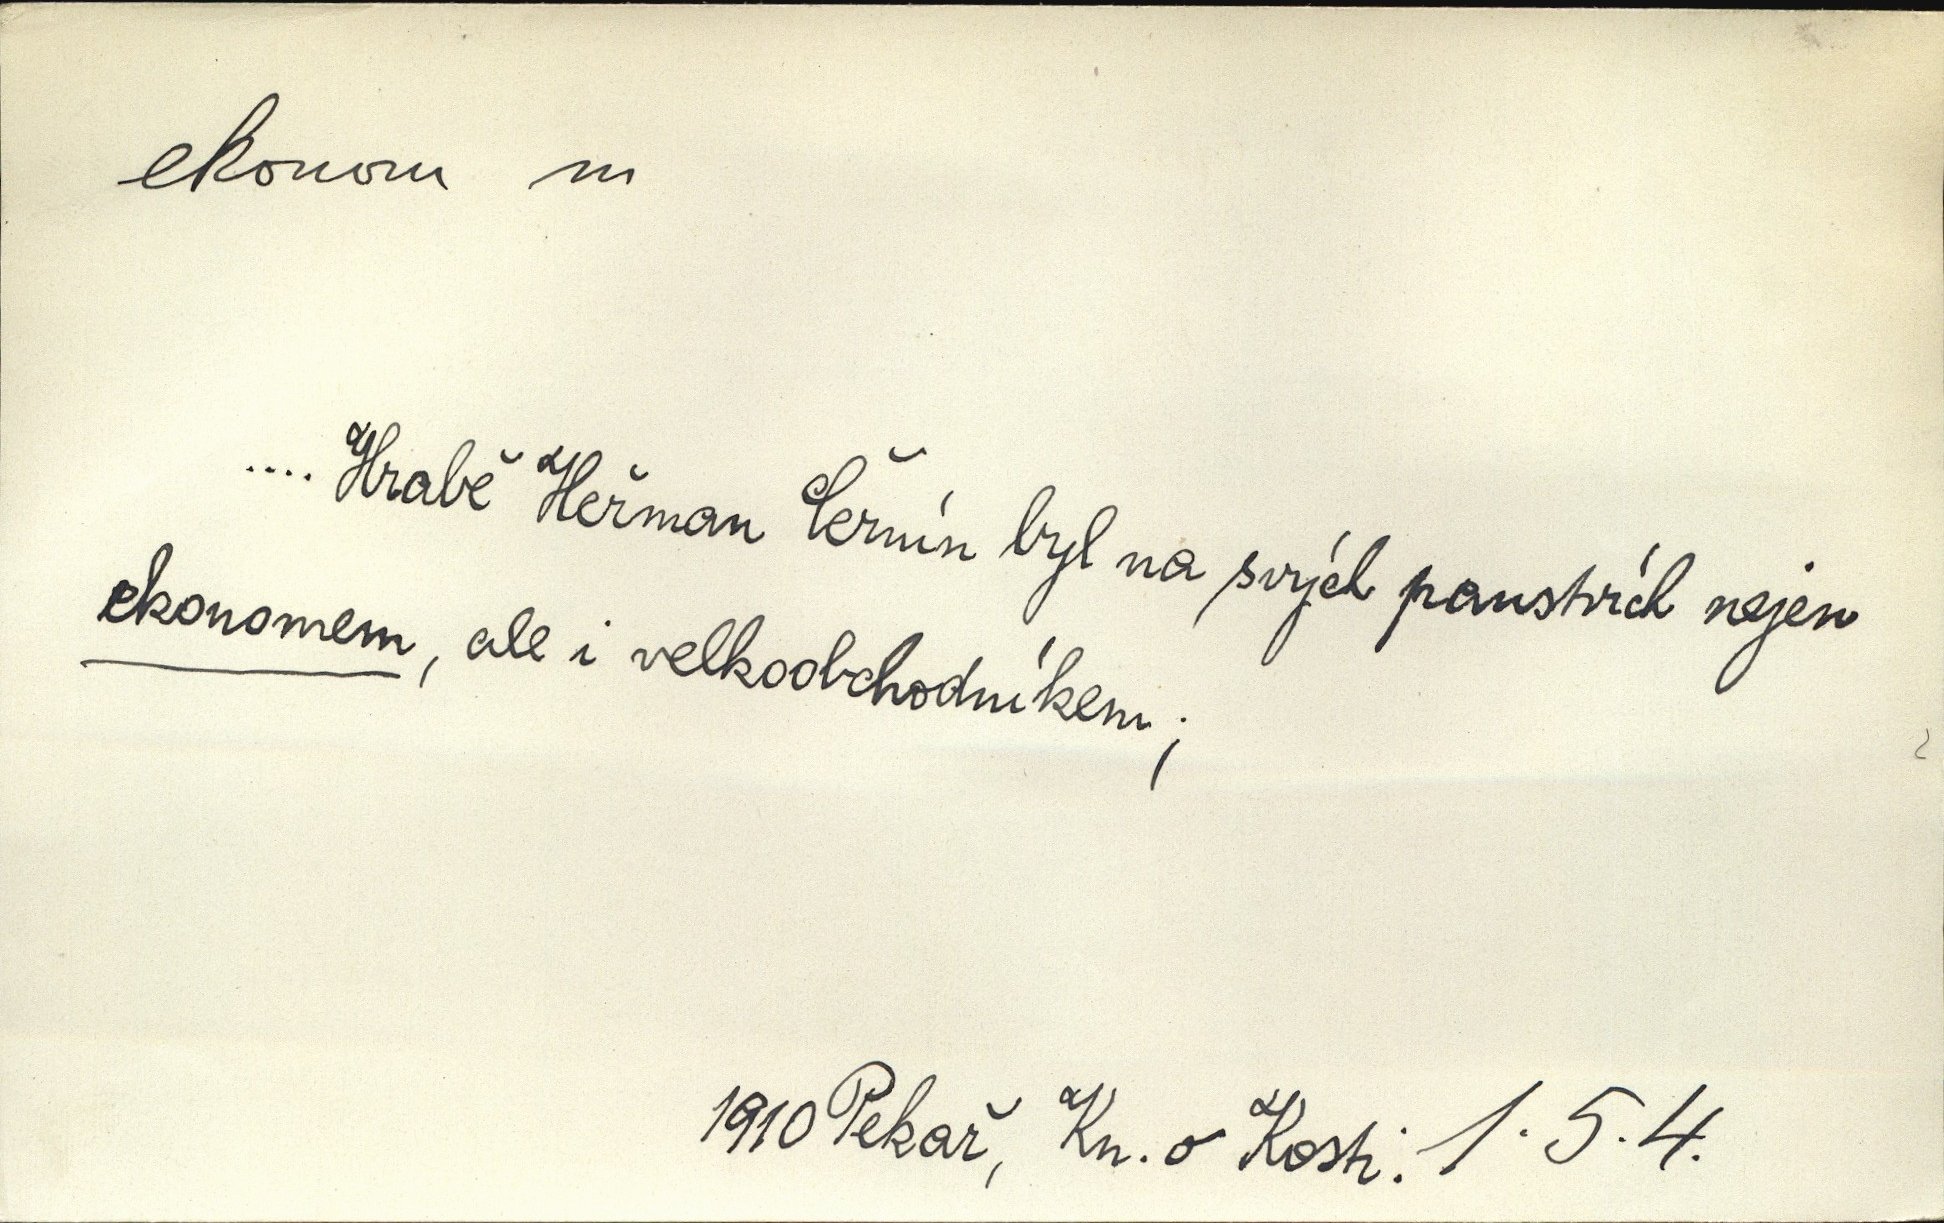 ekonom m
.... Hrabě Heřman Černín byl na svých panstvích nejen
ekonomem, ale i velkoobchodníkem;
1910 Pekař, Kn. o Kosti. 1. 5. 4.